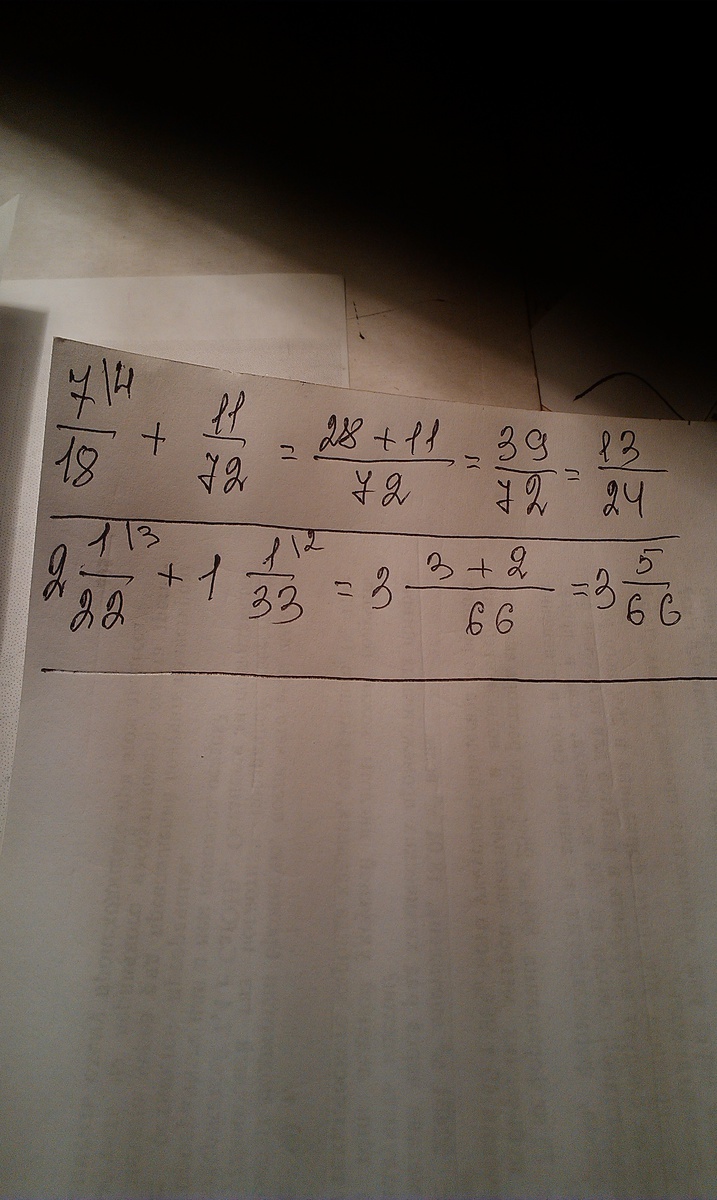 7\4/18 + 11/72 = 28+11/72 = 39/72 = 13/24
2 1\3/22 + 1 1\2/33 = 3 3+2/66 = 3 5/66